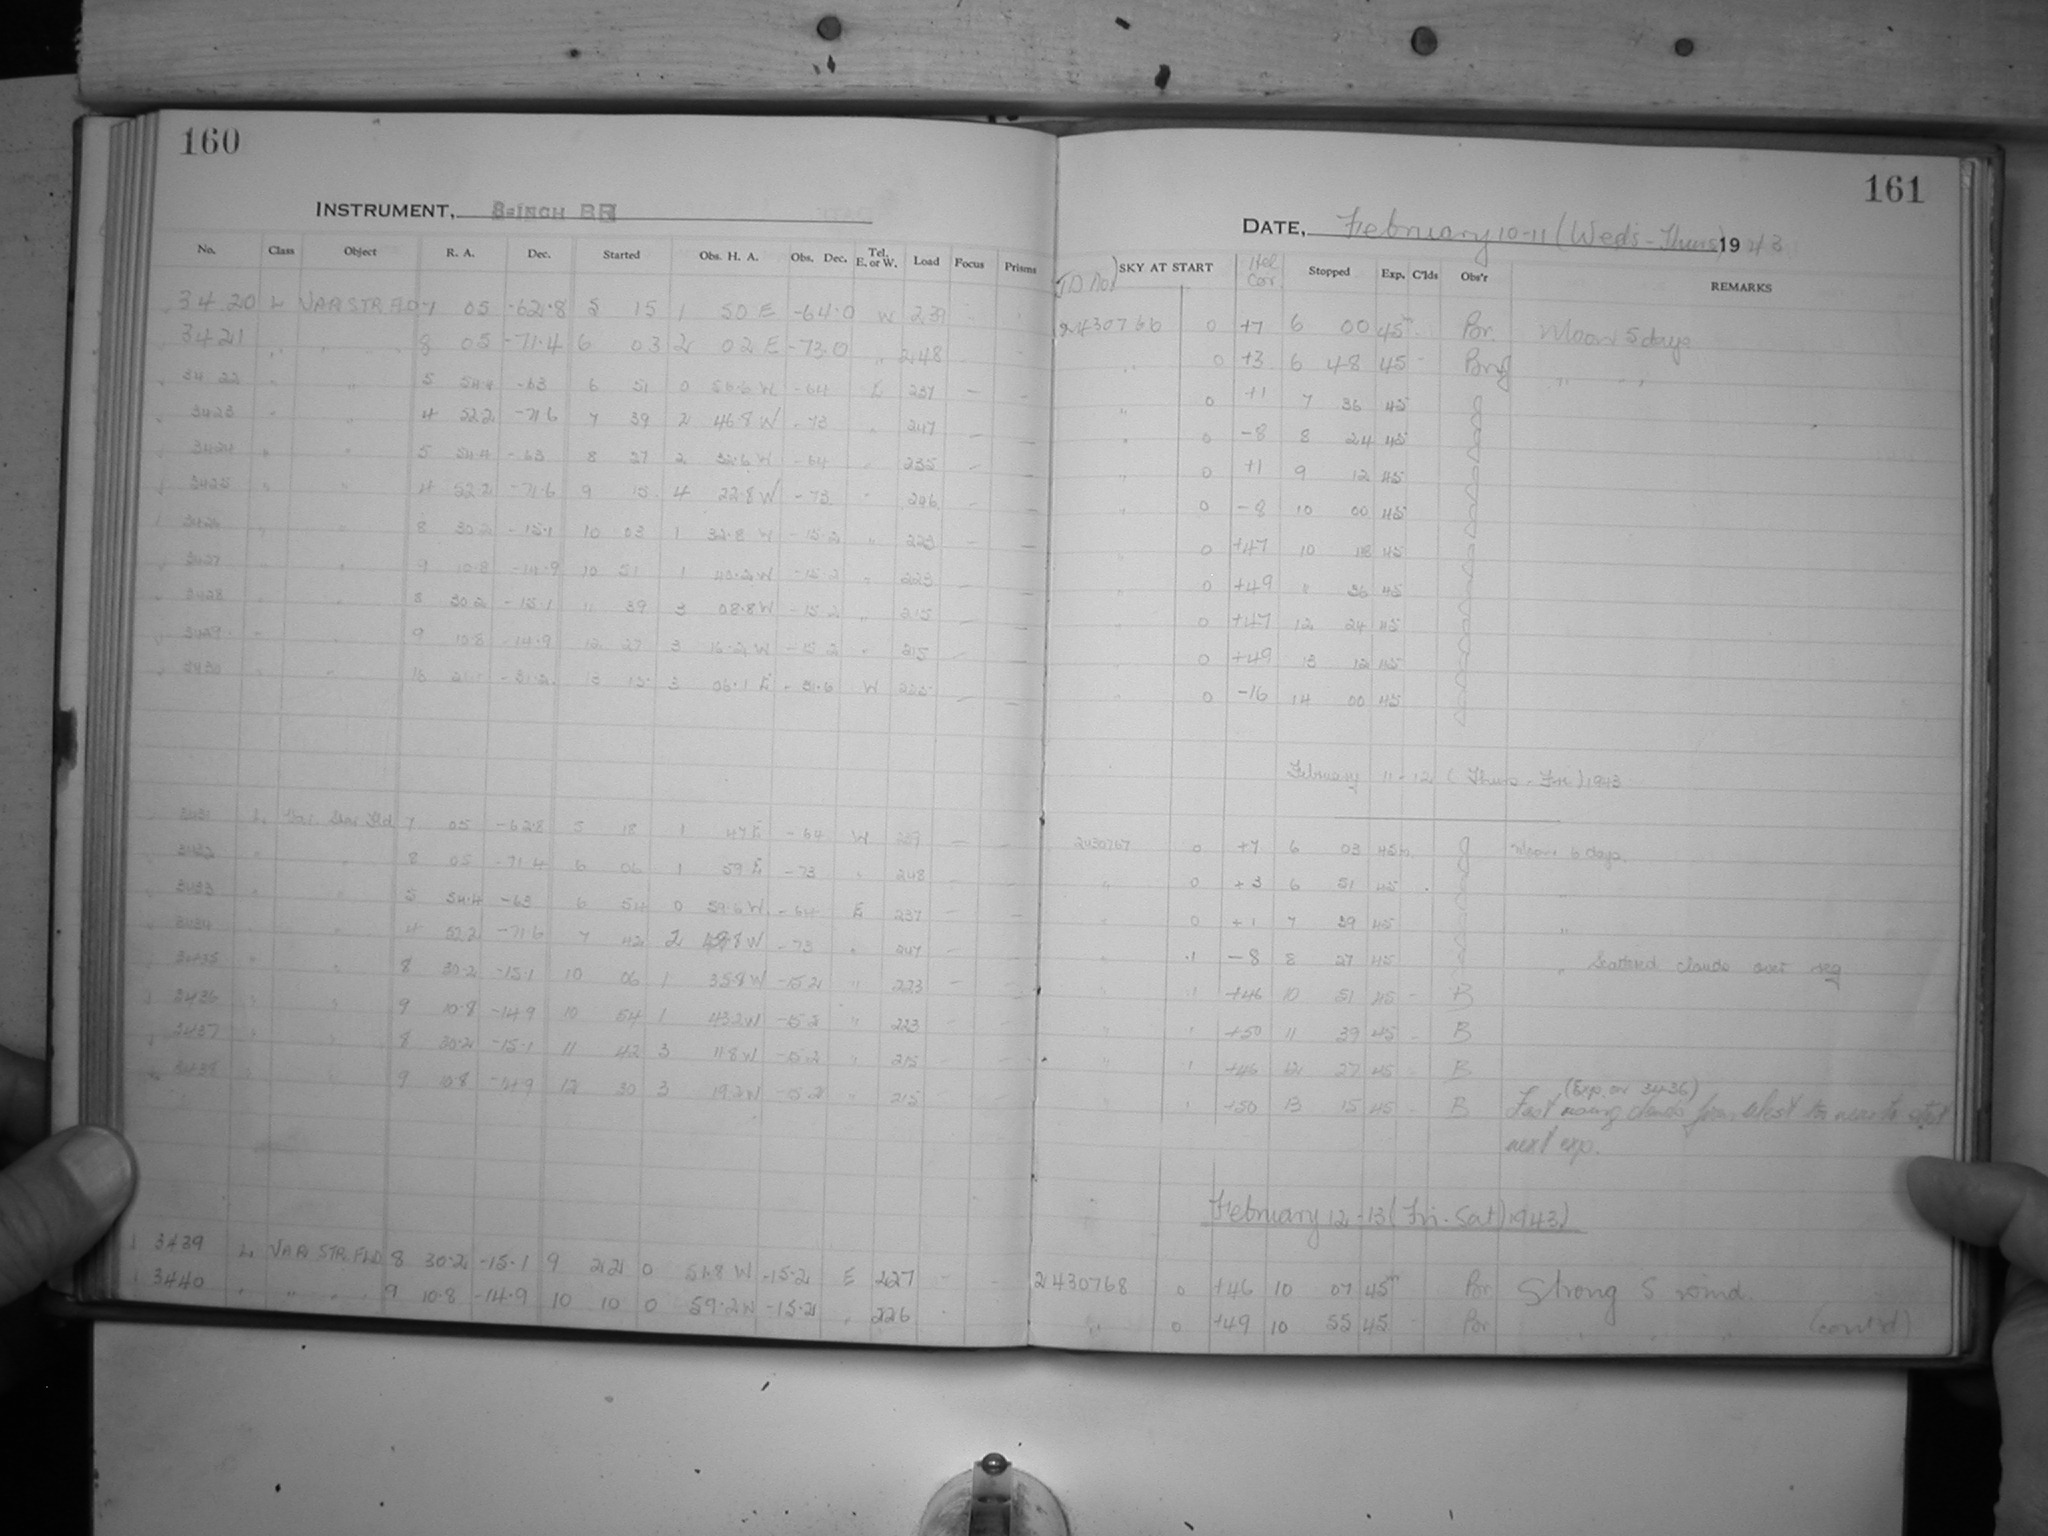 160
INSTRUMENT, 8-INCH BR
No. Class Object R. A. Dec. Started Obs. H. A. Obs. Dec. Tel. E. or W. Load Focus Prisms
3420 L VAR STR FLD 7 05 -62.8 5 15 1 50 E -64.0 W 239
3421 " " 8 05 -71.4 6 03 2 02 E -73.0 " 248
3422 " " 5 54.4 -63 6 51 0 56.6 W -64 E 237 — —
3423 " " 4 52.2 -71.6 7 39 2 46.8 W -73 " 247 — —
3424 " " 5 54.4 -63 8 27 2 32.6 W -64 " 235 — —
3425 " " 4 52.2 -71.6 9 15 4 22.8 W -73 " 246 — —
3426 " " 8 30.2 -15.1 10 03 1 32.8 W -15.2 " 223 — —
3427 " " 9 10.8 -14.9 10 51 1 40.2 W -15.2 " 223 — —
3428 " " 8 30.2 -15.1 11 39 3 08.8 W -15.2 " 215 — —
3429 " " 9 10.8 -14.9 12 27 3 16.2 W -15.2 " 215 — —
3430 " " -31.2 13 15 3 06.1 E -31.6 W —
3431 L Var. Star Fld 7 05 -62.8 5 18 1 47 E -64 W 239 — —
3432 " " 8 05 -71.4 6 06 1 59 E -73 " 248 — —
3433 " " 5 54.4 -63 6 54 0 59.6 W -64 E 237 — —
3434 " " 4 52.2 -71.6 7 42 2 W -73 " 247 — —
3435 " " 8 30.2 -15.1 10 06 1 35.8 W -15.2 " 223 — —
3436 " " 9 10.8 -14.9 10 54 1 43.2 W -15.2 " 223 — —
3437 " " 8 30.2 -15.1 11 42 3 11.8 W -15.2 " 215 — —
3438 " " 9 10.8 -14.9 12 30 3 19.2 W -15.2 " 215 — —
3439 L VAR STR. FLD 8 30.2 -15.1 9 22 0 51.8 W -15.2 E 227
3440 " " " 9 10.8 -14.9 10 10 0 59.2 W -15.2 " 226
161
DATE, February 10-11 (Wed's - Thurs) 1943
JD No. SKY AT START Hel Cor Stopped Exp. C'lds Obs'r REMARKS
2430766 0 +7 6 00 45m Br. Moon 5 days
" 0 +3 6 48 45 - " "
" 0 +1 7 36 45
" 0 -8 8 24 45
" 0 +1 9 12 45
" 0 -8 10 00 45
" 0 +47 10 48 45
" 0 +49 " 36 45
" 0 +47 12 24 45
" 0 +49 13 12 45
" 0 -16 14 00 45
February 11-12 (Thurs - Fri) 1943
2430767 0 +7 6 03 45m Moon 6 days
" 0 +3 6 51 45 "
" 0 +1 7 39 45 "
" 1 -8 8 27 45 " Scattered clouds over reg
" 1 +46 10 51 45 - B
" 1 +50 11 39 45 - B
" 1 +46 12 27 45 - B
(Exp. on 3436)
" 1 +50 13 15 45 - B Fast moving clouds from West
next exp.
February 12-13 (Fri - Sat) 1943
2430768 0 +46 10 07 45m Br Strong S wind.
" 0 +49 10 55 45 - Br " " " (cont'd)